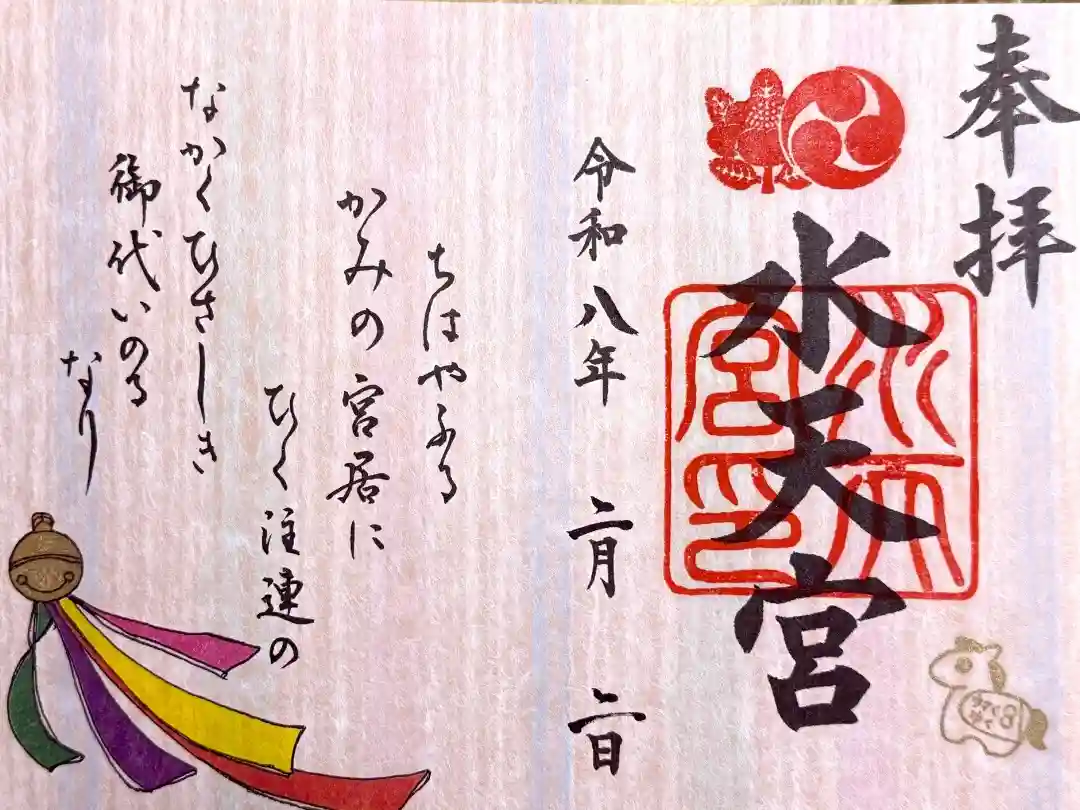 奉拝
水天宮
水天宮印
令和八年 二月 二日
ちはやふる
かみの宮居に
ひく注連の
なかくひさしき
御代いのる
なり
うまく
ゆく